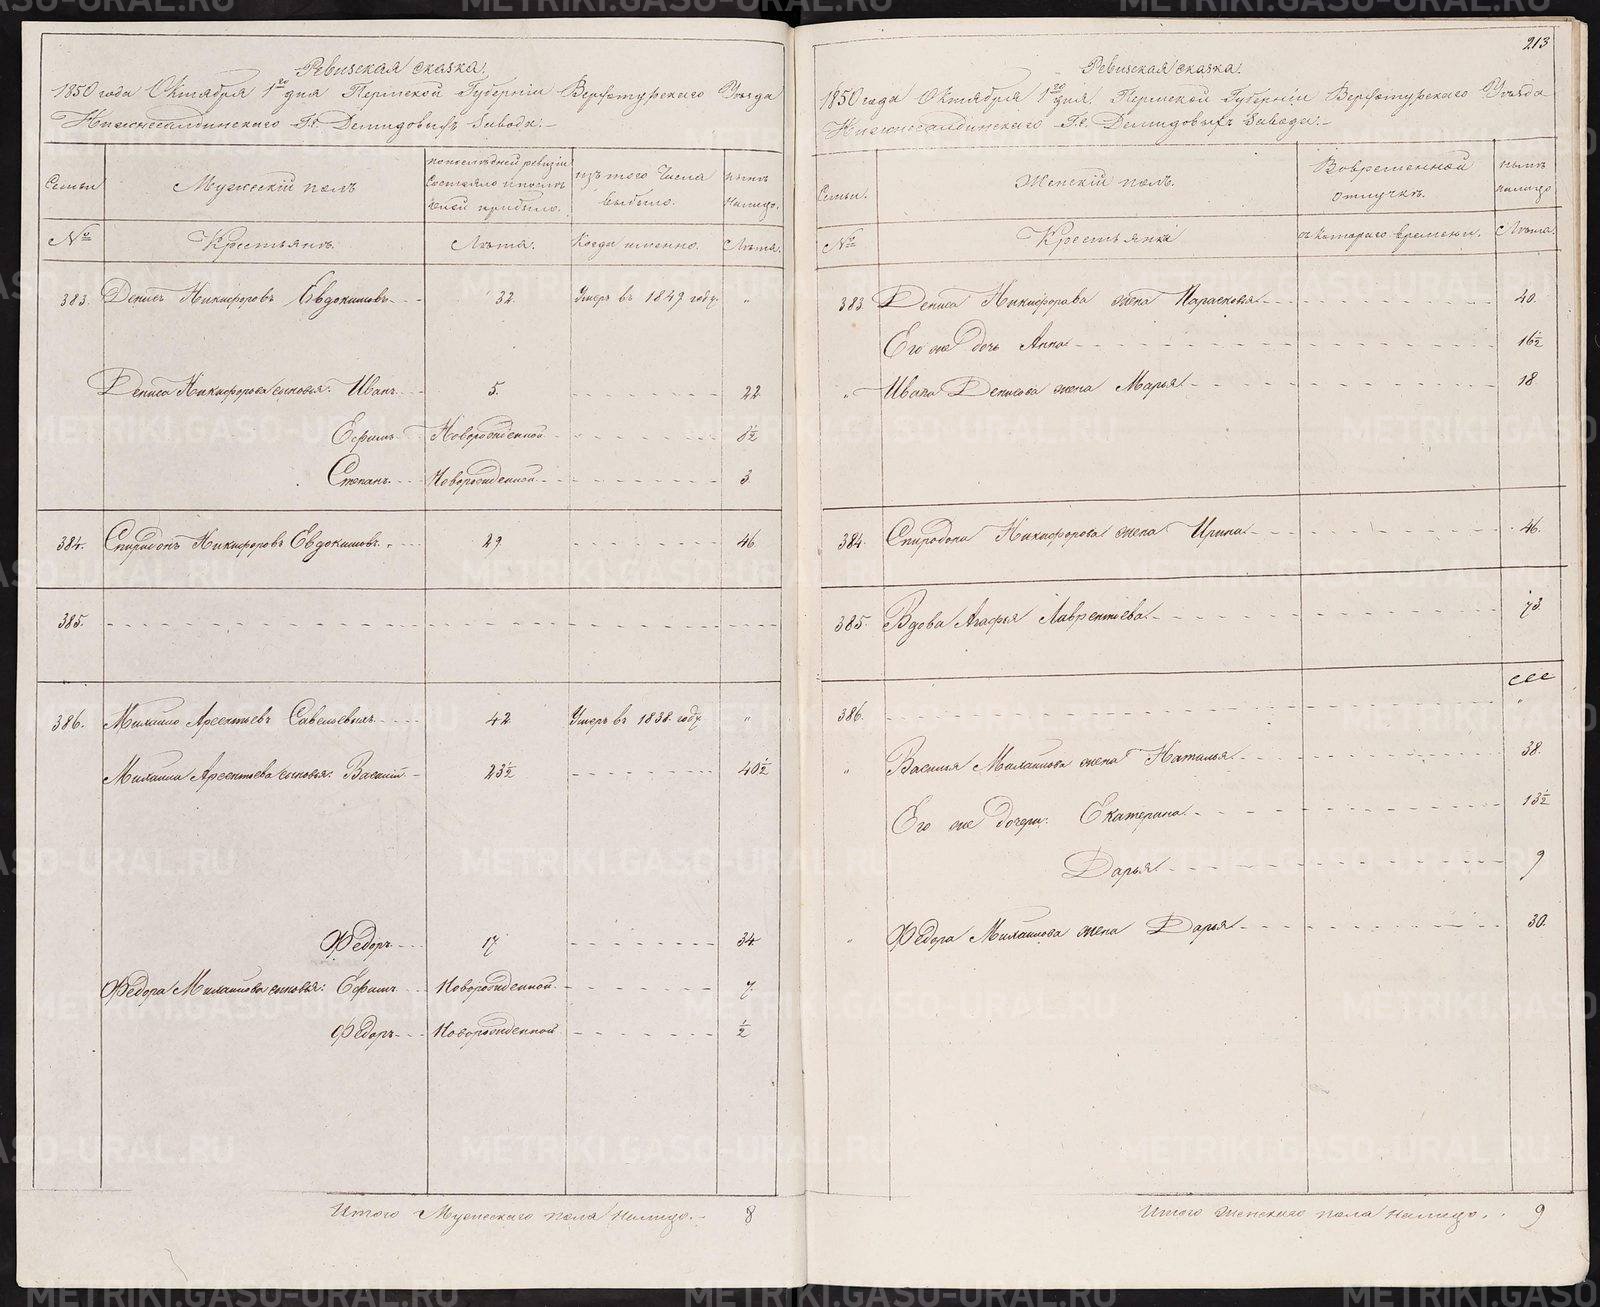 Ревизская сказка.
1850 года Октября 1го дня Пермской Губерніи Верхотурскаго Уѣзда
Нижнесалдинскаго Г.г. Демидовыхъ Завода.
Семьи
Мужескій полъ
по послѣдней ревизіи состояло и послѣ оной прибыло.
изъ того числа выбыло.
нынѣ на лицо.
№
Крестьянъ
Лѣта.
Когда именно.
Лѣта.
383. Денисъ Никифоровъ Евдокимовъ 32. Умеръ въ 1849 году. "
Дениса Никифорова сыновья: Иванъ 5. 22
Ефимъ Новорожденной 8½
Степанъ Новорожденной 3
384. Спиридонъ Никифоровъ Евдокимовъ 29 46
385.
386. Милашью Арсентьевъ Савельевыхъ 42 Умеръ въ 1838 году "
Арсентьева сыновья: Василій 23½ 40½
Федоръ 17 34
Федора сыновья: Ефимъ Новорожденной 7.
Федоръ Новорожденной ½
Итого Мужескаго пола на лицо. 8
213
Ревизская сказка.
1850 года Октября 1го дня Пермской Губерніи Верхотурскаго Уѣзда
Нижнесалдинскаго Г.г. Демидовыхъ Завода.
Семьи.
Женскій полъ.
Во временной отлучкѣ.
нынѣ на лицо
№
Крестьянка
съ котораго времени.
Лѣта.
383 Дениса Никифорова жена Парасковья 40.
Его же дочь Анна 16½
" Ивана Денисова жена Марья 18
384 Спиридона Никифорова жена Ирина 46.
385. Вдова Агафья Лаврентьева 73
386. "
" Василья жена Наталья 38.
Его же дочери: Екатерина 13½
Дарья 9
" Федора жена Дарья 30.
Итого женскаго пола на лицо. 9
METRIKI.GASO-URAL.RU